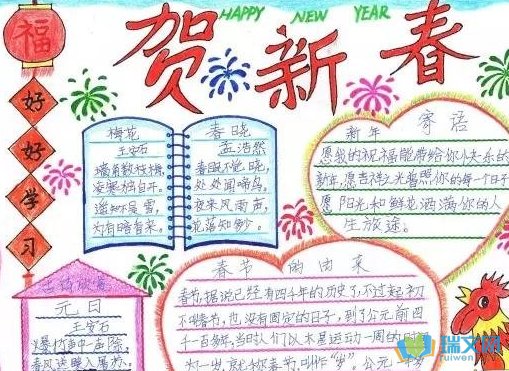 HAPPY NEW YEAR
贺新春
福
好
好
学
习
梅花
王安石
墙角数枝梅,
凌寒独自开。
遥知不是雪,
为有暗香来。
春晓
孟浩然
春眠不觉晓,
处处闻啼鸟。
夜来风雨声,
花落知多少。
新年寄语
愿我的祝福能带给你快乐的
新年,愿吉祥之光普照你的每一个日子
愿阳光和鲜花洒满你的人
生旅途。
元日
王安石
爆竹声中一岁除,
春风送暖入屠苏。
春节的由来
春节,据说已经有四千年的历史了,不过起初
不叫春节,也没有固定的日子,到了公元前四
千一百多年,当时人们以木星运动一周的时
为一岁,就称春节叫作“岁”。公元一
瑞文网
ruiwen.com